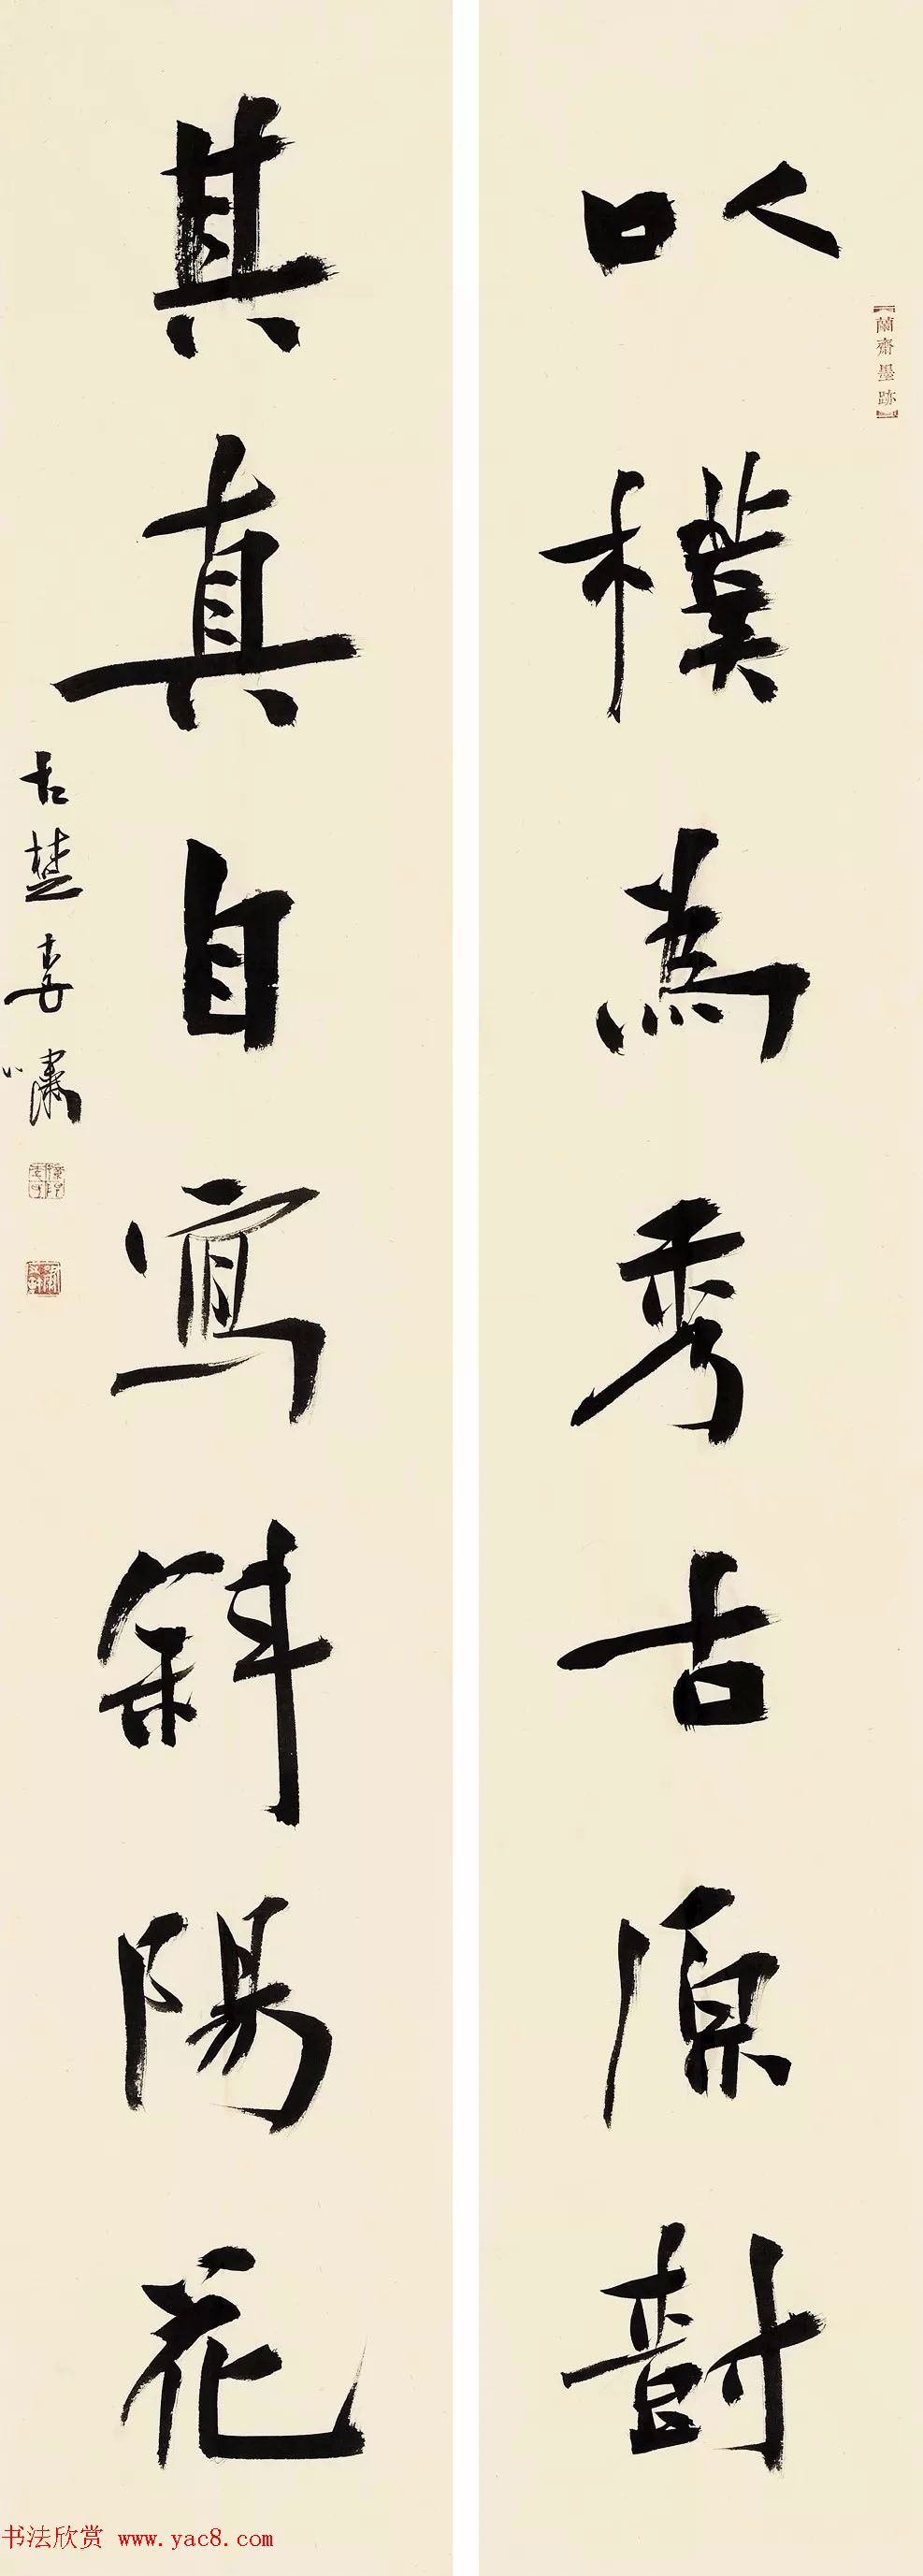 以樸為秀古原樹
蘭齋墨跡
其真自寫斜陽花
古楚李嘯
书法欣赏 www.yac8.com